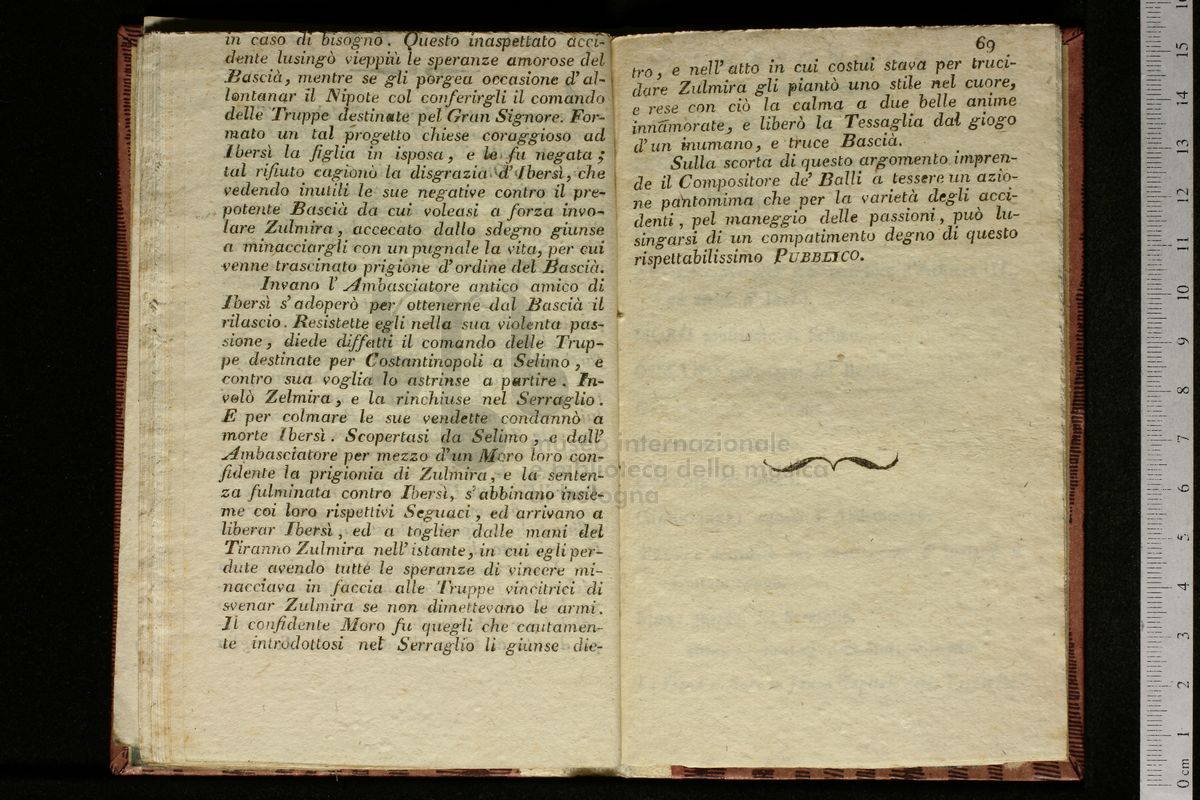 in caso di bisogno. Questo inaspettato acci-
dente lusingò vieppiù le speranze amorose del
Bascià, mentre se gli porgea occasione d'al-
lontanar il Nipote col conferirgli il comando
delle Truppe destinate pel Gran Signore. For-
mato un tal progetto chiese coraggioso ad
Ibersì la figlia in isposa, e le fu negata;
tal rifiuto cagionò la disgrazia d'Ibersì, che
vedendo inutili le sue negative contro il pre-
potente Bascià da cui voleasi a forza invo-
lare Zulmira, accecato dallo sdegno giunse
a minacciargli con un pugnale la vita, per cui
venne trascinato prigione d'ordine del Bascià.
Invano l'Ambasciatore antico amico di
Ibersì s'adoperò per ottenerne dal Bascià il
rilascio. Resistette egli nella sua violenta pas-
sione, diede diffatti il comando delle Trup-
pe destinate per Costantinopoli a Selimo, e
contro sua voglia lo astrinse a partire. In-
volò Zelmira, e la rinchiuse nel Serraglio.
E per colmare le sue vendette condannò a
morte Ibersì. Scopertasi da Selimo, e dall'
Ambasciatore per mezzo d'un Moro loro con-
fidente la prigionia di Zulmira, e la senten-
za fulminata contro Ibersì, s'abbinano insie-
me coi loro rispettivi Seguaci, ed arrivano a
liberar Ibersì, ed a toglier dalle mani del
Tiranno Zulmira nell'istante, in cui egli per-
dute avendo tutte le speranze di vincere mi-
nacciava in faccia alle Truppe vincitrici di
svenar Zulmira se non dimettevano le armi.
Il confidente Moro fu quegli che cautamen-
te introdottosi nel Serraglio li giunse die-
69
tro, e nell'atto in cui costui stava per truci-
dare Zulmira gli piantò uno stile nel cuore,
e rese con ciò la calma a due belle anime
innamorate, e liberò la Tessaglia dal giogo
d'un inumano, e truce Bascià.
Sulla scorta di questo argomento impren-
de il Compositore de' Balli a tessere un azio-
ne pantomima che per la varietà degli acci-
denti, pel maneggio delle passioni, può lu-
singarsi di un compatimento degno di questo
rispettabilissimo PUBBLICO.
museo internazionale
e biblioteca della musica
di bologna
0 cm 1 2 3 4 5 6 7 8 9 10 11 12 13 14 15 16